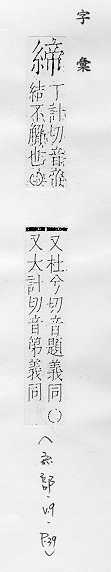 字彙
締
丁計切音帝
結不解也
又杜兮切音題義同
又大計切音第義同
(糸部.V9.P39)